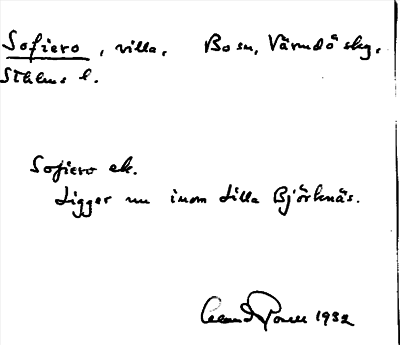 Sofiero, villa, Bo sn, Värmdö skg,
Sthlms l.
Sofiero ek.
Ligger nu inom Lilla Björknäs.
1932